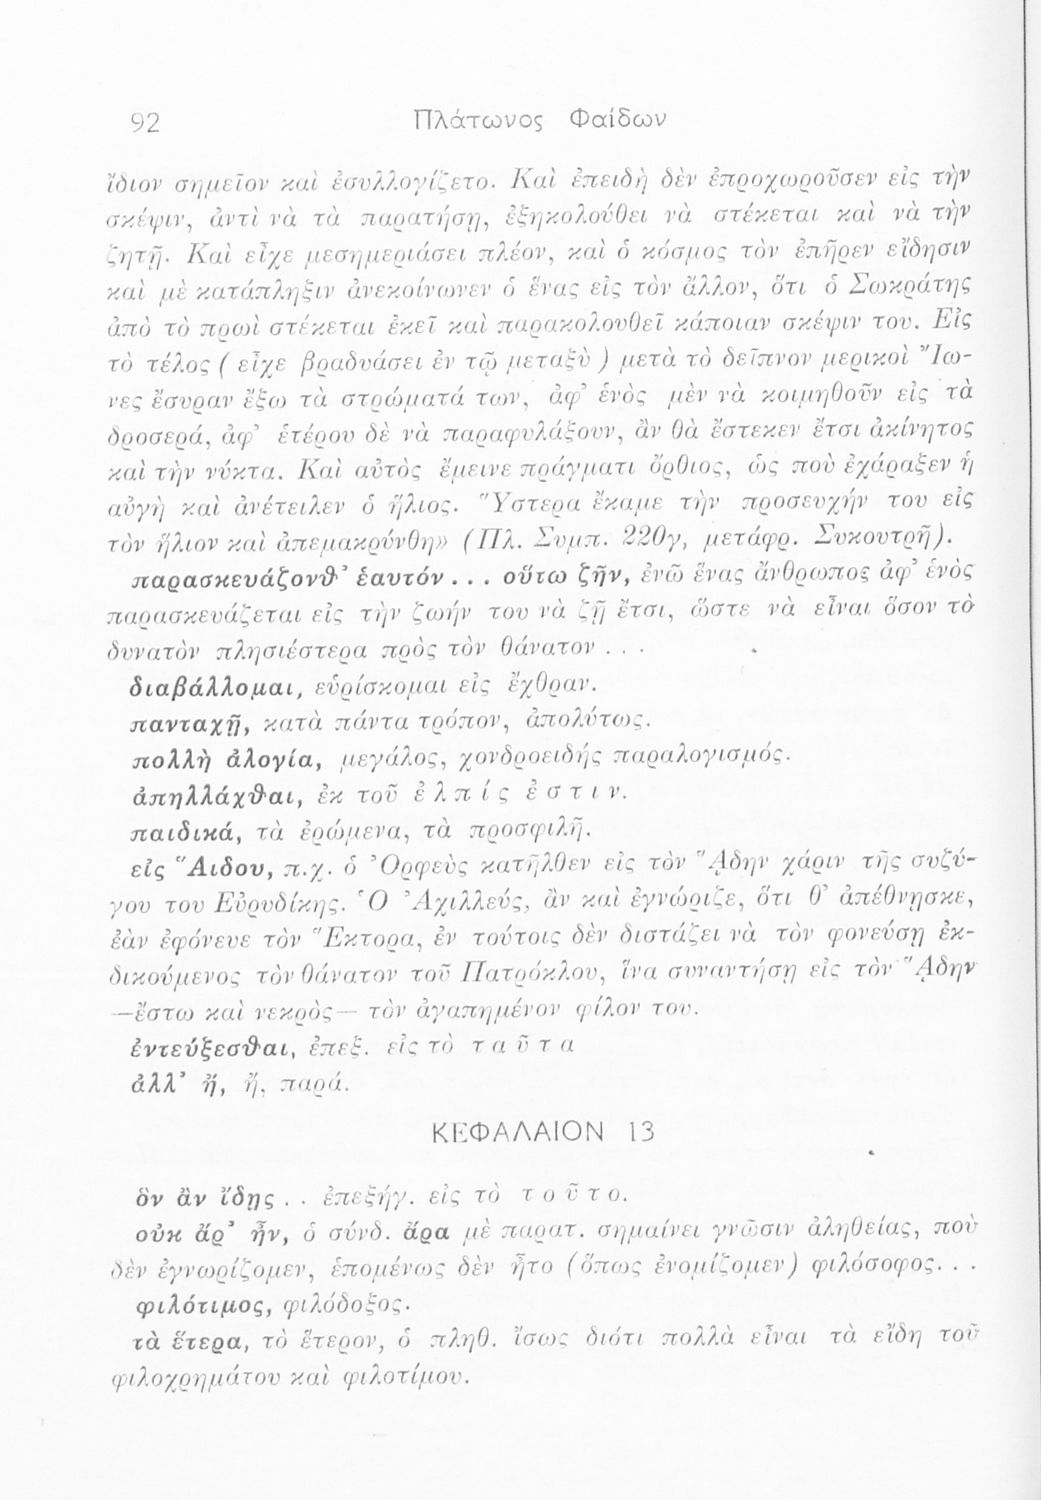 92 Πλάτωνος Φαίδων
ἴδιον σημεῖον καὶ ἐσυλλογίζετο. Καὶ ἐπειδὴ δὲν ἐπροχωροῦσεν εἰς τὴν
σκέψιν, ἀντὶ νὰ τὰ παρατήσῃ, ἐξηκολούθει νὰ στέκεται καὶ νὰ τὴν
ζητῇ. Καὶ εἶχε μεσημεριάσει πλέον, καὶ ὁ κόσμος τὸν ἐπῆρεν εἴδησιν
καὶ μὲ κατάπληξιν ἀνεκοίνωνεν ὁ ἕνας εἰς τὸν ἄλλον, ὅτι ὁ Σωκράτης
ἀπὸ τὸ πρωὶ στέκεται ἐκεῖ καὶ παρακολουθεῖ κάποιαν σκέψιν του. Εἰς
τὸ τέλος ( εἶχε βραδυάσει ἐν τῷ μεταξὺ ) μετὰ τὸ δεῖπνον μερικοὶ Ἴω-
νες ἔσυραν ἔξω τὰ στρώματά των, ἀφ’ ἑνὸς μὲν νὰ κοιμηθοῦν εἰς τὰ
δροσερά, ἀφ’ ἑτέρου δὲ νὰ παραφυλάξουν, ἂν θὰ ἔστεκεν ἔτσι ἀκίνητος
καὶ τὴν νύκτα. Καὶ αὐτὸς ἔμεινε πράγματι ὄρθιος, ὡς ποὺ ἐχάραξεν ἡ
αὐγὴ καὶ ἀνέτειλεν ὁ ἥλιος. Ὕστερα ἔκαμε τὴν προσευχήν του εἰς
τὸν ἥλιον καὶ ἀπεμακρύνθη» (Πλ. Συμπ. 220γ, μετάφρ. Συκουτρῆ).
παρασκευάζονθ’ ἑαυτόν . . . οὕτω ζῆν, ἐνῶ ἕνας ἄνθρωπος ἀφ’ ἑνὸς
παρασκευάζεται εἰς τὴν ζωήν του νὰ ζῇ ἔτσι, ὥστε νὰ εἶναι ὅσον τὸ
δυνατὸν πλησιέστερα πρὸς τὸν θάνατον . . .
διαβάλλομαι, εὑρίσκομαι εἰς ἔχθραν.
πανταχῇ, κατὰ πάντα τρόπον, ἀπολύτως.
πολλὴ ἀλογία, μεγάλος, χονδροειδής παραλογισμός.
ἀπηλλάχθαι, ἐκ τοῦ ἐ λ π ί ς ἐ σ τ ι ν.
παιδικά, τὰ ἐρώμενα, τὰ προσφιλῆ.
εἰς Ἅιδου, π.χ. ὁ Ὀρφεὺς κατῆλθεν εἰς τὸν Ἅδην χάριν τῆς συζύ-
γου του Εὐρυδίκης. Ὁ Ἀχιλλεύς, ἂν καὶ ἐγνώριζε, ὅτι θ’ ἀπέθνησκε,
ἐὰν ἐφόνευε τὸν Ἕκτορα, ἐν τούτοις δὲν διστάζει νὰ τὸν φονεύσῃ ἐκ-
δικούμενος τὸν θάνατον τοῦ Πατρόκλου, ἵνα συναντήσῃ εἰς τὸν ᾍδην
—ἔστω καὶ νεκρὸς— τὸν ἀγαπημένον φίλον του.
ἐντεύξεσθαι, ἐπεξ. εἰς τὸ τ α ῦ τ α
ἀλλ’ ἤ, ἤ, παρά.
ΚΕΦΑΛΑΙΟΝ 13
ὃν ἂν ἴδῃς . . ἐπεξήγ. εἰς τὸ τ ο ῦ τ ο.
οὐκ ἄρ’ ἦν, ὁ σύνδ. ἄρα μὲ παρατ. σημαίνει γνῶσιν ἀληθείας, ποὺ
δὲν ἐγνωρίζομεν, ἑπομένως δὲν ἦτο (ὅπως ἐνομίζομεν) φιλόσοφος. . .
φιλότιμος, φιλόδοξος.
τὰ ἕτερα, τὸ ἕτερον, ὁ πληθ. ἴσως διότι πολλὰ εἶναι τὰ εἴδη τοῦ
φιλοχρημάτου καὶ φιλοτίμου.